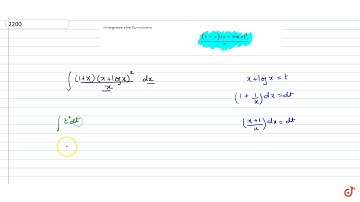 2200
Integrate the functions
(1+x)(x+logx)²/x
∫ (1+x)(x+logx)²/x dx
x+logx=t
(1+1/x)dx=dt
∫ t²dt
(x+1/x)dx=dt